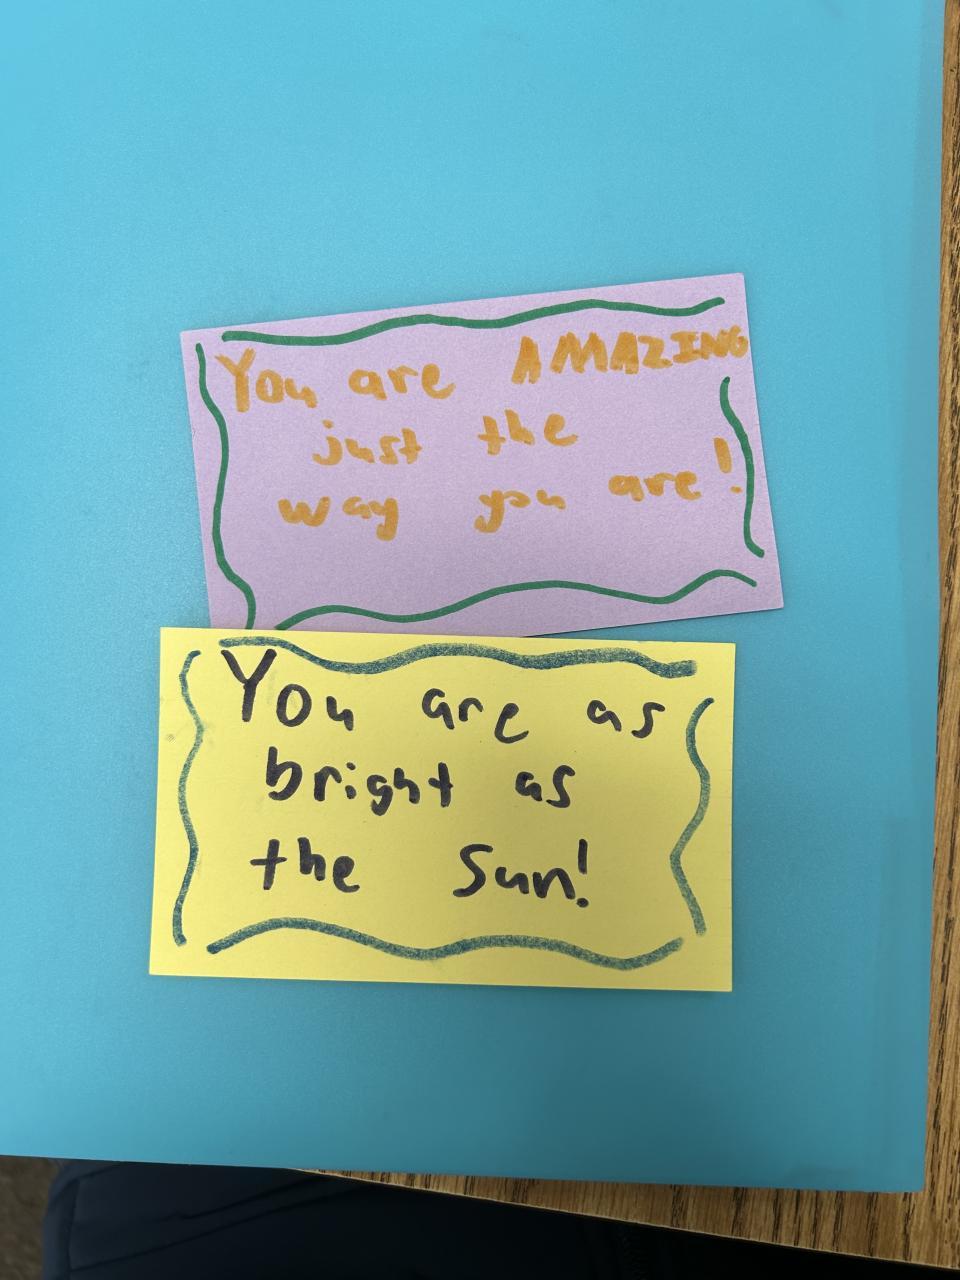 You are AMAZING
just the
way you are!
You are as
bright as
the Sun!